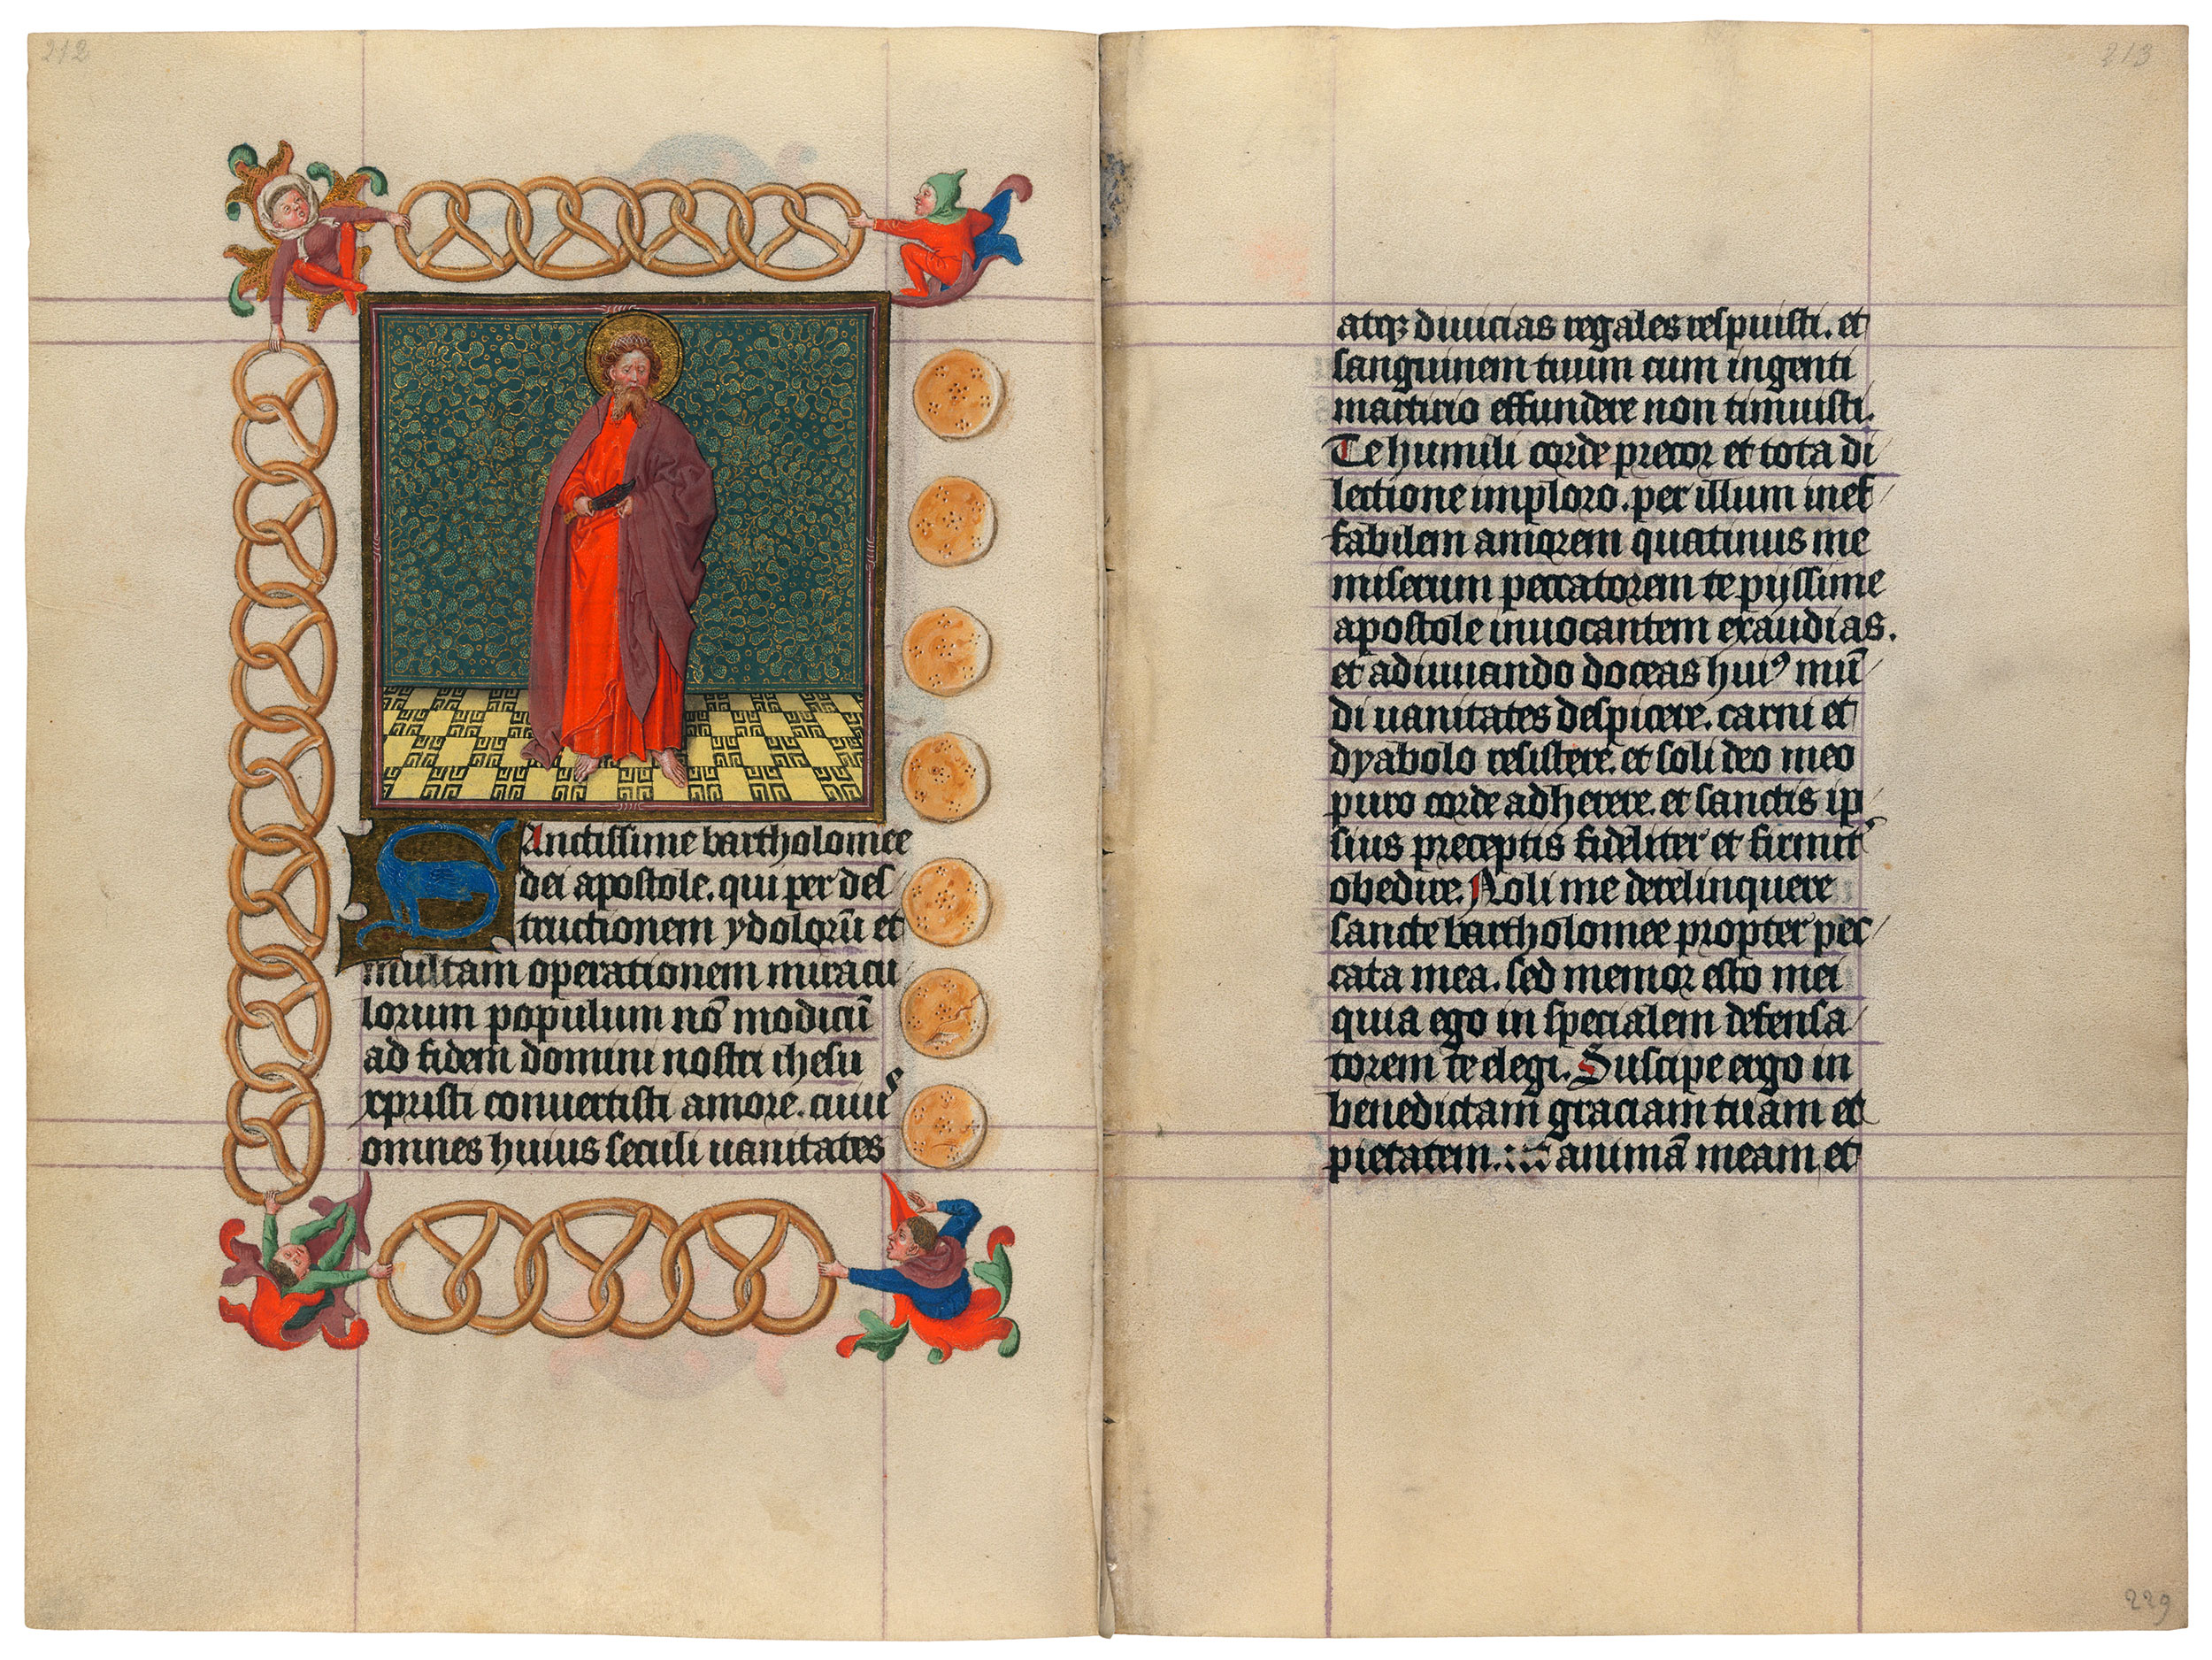 212
Sanctissime bartholomee
dei apostole. qui per des
tructionem ydolorū et
multam operationem miracu
lorum populum nō modicū
ad fidem domini nostri ihesu
xpristi conuertisti amore. cuiuꝰ
omnes huius seculi uanitates
213
atqꝫ diuicias regales respuisti. et
sanguinem tuum cum ingenti
martirio effundere non timuisti.
Te humili corde precor et tota di
lectione imploro. per illum inef
fabilem amorem quatinus me
miserum peccatorem te pijssime
apostole inuocantem exaudias.
et adiuuando doceas huiꝰ mū
di uanitates despicere. carni et
dyabolo resistere. et soli deo meo
puro corde adherere. et sanctis ip
sius preceptis fideliter et firmit͛
obedire. Noli me derelinquere
sancte bartholomee propter pec
cata mea. sed memor esto mei
quia ego in specialem defensa
torem te elegi. Suscipe ergo in
benedictam graciam tuam et
pietatem. animā meam et
229